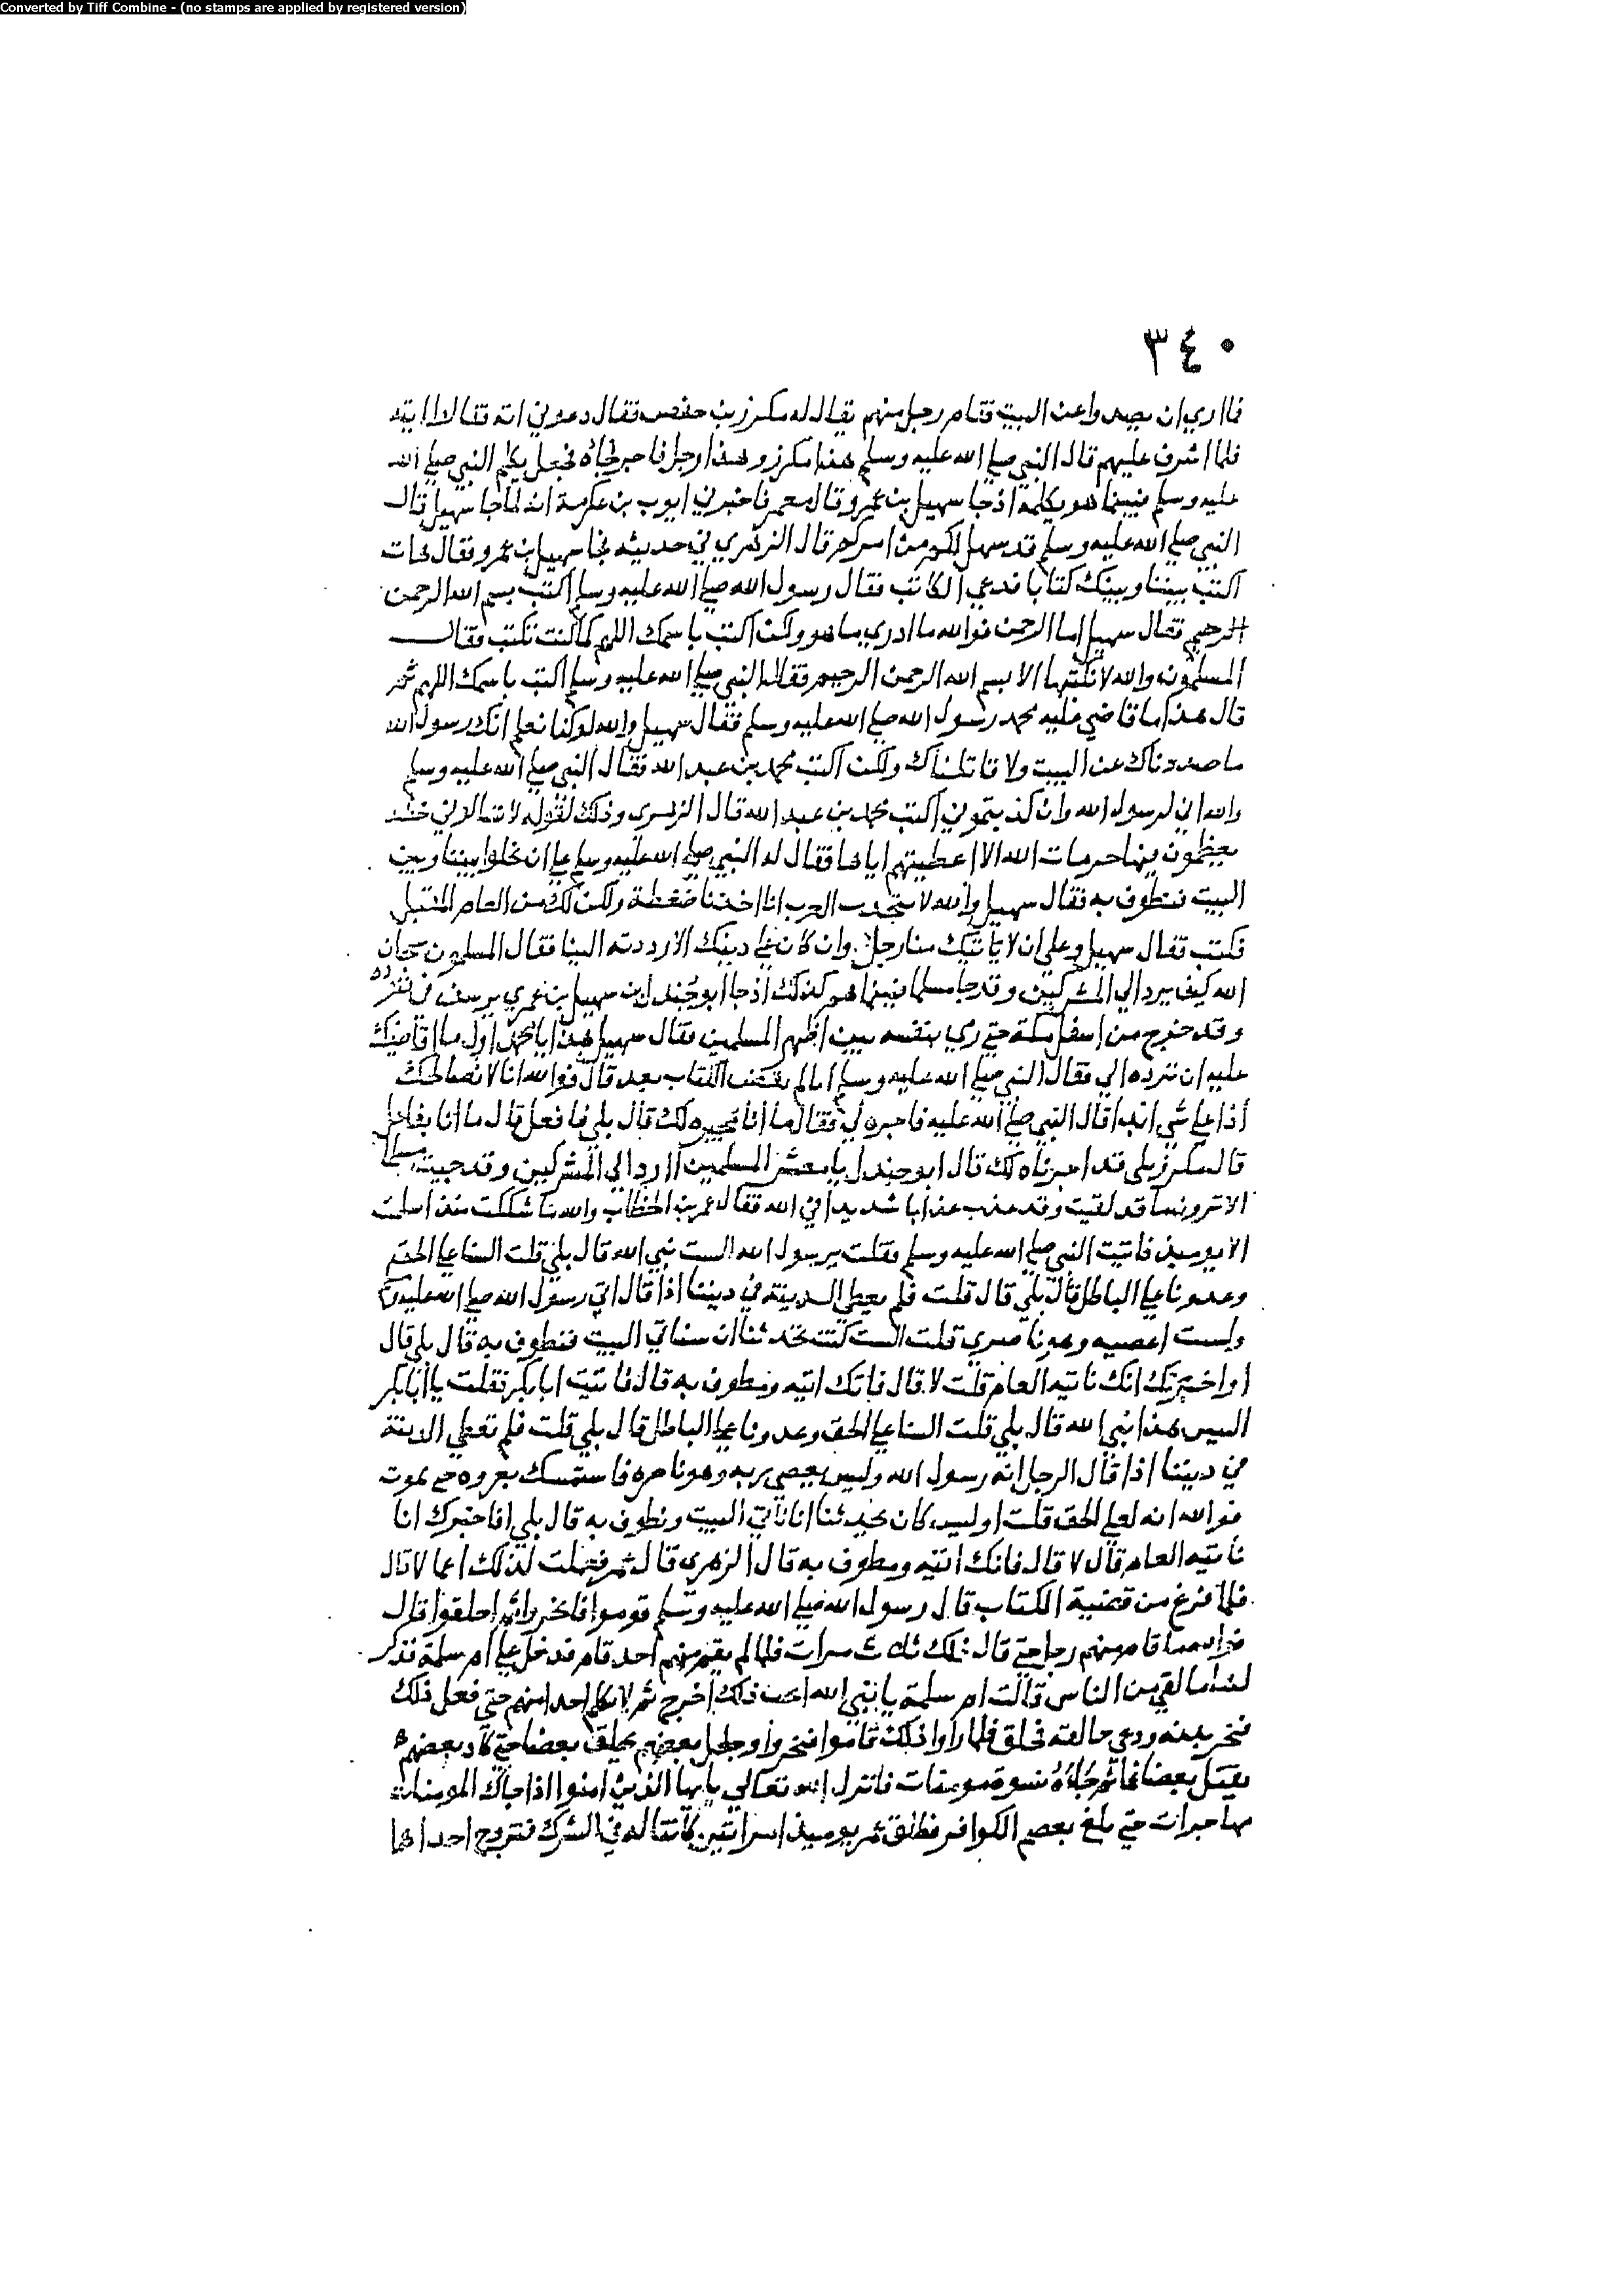 Converted by Tiff Combine - (no stamps are applied by registered version)
٣٤٠
فما اري ان يصدوا عن البيت فقام رجل منهم يقال له مكرز بن حفص فقال دعوني اته فقالوا ايته
فلما اشرف عليهم قال النبي صلي الله عليه وسلم هذا مكرز وهذا رجل فاجر فجاه فجعل يكلم النبي صلي الله
عليه وسلم فبينما هو يكلمه اذ جا سهيل بن عمرو قال معمر فاخبرني ايوب بن عكرمة انه لما جا سهيل قال
النبي صلي الله عليه وسلم قد سهل لكم من امركم قال الزهري في حديثه فجا سهيل بن عمرو فقال هات
اكتب بيننا وبينك كتابا فدعي الكاتب فقال رسول الله صلي الله عليه وسلم اكتب بسم الله الرحمن
الرحيم فقال سهيل اما الرحمن فوالله ما ادري ما هو ولكن اكتب باسمك اللهم كما كنت تكتب فقال
المسلمون والله لا نكتبها الا بسم الله الرحمن الرحيم فقال النبي صلي الله عليه وسلم اكتب باسمك اللهم ثم
قال هذا ما قاضي عليه محمد رسول الله صلي الله عليه وسلم فقال سهيل والله لو كنا نعلم انك رسول الله
ما صددناك عن البيت ولا قاتلناك ولكن اكتب محمد بن عبد الله فقال النبي صلي الله عليه وسلم
والله اني لرسول الله وان كذبتموني اكتب محمد بن عبد الله قال الزهري وذلك لقوله لا تسالوني خطه
يعظمون فيها حرمات الله الا اعطيتهم اياها فقال له النبي صلي الله عليه وسلم علي ان تخلوا بيننا وبين
البيت فنطوف به فقال سهيل والله لا تتحدث العرب انا اخذنا ضغطة ولكن لك من العام المقبل
فكتب فقال سهيل وعلي ان لا ياتيك منا رجل وان كان علي دينك الا رددته الينا فقال المسلمون سبحان
الله كيف يرد الي المشركين وقد جا مسلما فبينما هو كذلك اذ جا ابو جندل بن سهيل بن عمرو يرسف في
وقد خرج من اسفل مكة حتي رمي بنفسه بين اظهر المسلمين فقال سهيل هذا يا محمد اول ما اقاضيك
عليه ان ترده الي فقال النبي صلي الله عليه وسلم انا لم نقض الكتاب بعد قال فوالله انا لا نصالحك
اذا علي شي ابدا قال النبي صلي الله عليه فاجره لي فقال ما انا بمجيره لك قال بلي فافعل قال ما انا بفاعل
قال مكرز بلي قد اجرناه لك قال ابو جندل يا معشر المسلمين ارد الي المشركين وقد جيت مسلما
الا ترون ما قد لقيت وقد عذب عذابا شديدا في الله فقال عمر بن الخطاب والله ما شككت منذ اسلمت
الا يوميذ فاتيت النبي صلي الله عليه وسلم فقلت يرسول الله الست نبي الله قال بلي قلت السنا علي الحق
وعدونا علي الباطل قال بلي قال قلت فلم نعطي الدينة في ديننا اذا قال اني رسول الله صلي الله عليه
ولست اعصيه وهو ناصري قلت الست كنت تحدثنا ان سناتي البيت فنطوف به قال بلي قال
اواخبرتك انك تاتيه العام قلت لا قال فانك اتيه ومطوف به قال فاتيت ابا بكر فقلت يا ابا بكر
اليس هذا نبي الله قال بلي قلت السنا علي الحق وعدونا علي الباطل قال بلي قلت فلم نعطي الدينة
في ديننا اذا قال الرجل انه رسول الله وليس يعصي ربه وهو ناصره فاستمسك بغرزه حتي تموت
فوالله انه لعلي الحق قلت اوليس كان يحدثنا انا ناتي البيت ونطوف به قال بلي افاخبرك انا
ناتيه العام قال لا قال فانك اتيه ومطوف به قال الزهري قال عمر فعملت لذلك اعمالا قال
فلما فرغ من قضية الكتاب قال رسول الله صلي الله عليه وسلم قوموا فانحروا ثم احلقوا قال
فوالله ما قام منهم رجل حتي قال ذلك ثلاث مرات فلما لم يقم منهم احد قام فدخل علي ام سلمة فذكر
لها ما لقي من الناس قالت ام سلمة يا نبي الله اتحب ذلك اخرج ثم لا تكلم احدا منهم حتي فعل ذلك
نحر بدنه ودعي حالقه فحلق فلما راوا ذلك قاموا فنحروا وجعل بعضهم يحلق بعضا حتي كاد بعضهم
يقتل بعضا غما ثم جاه نسوة مومنات فانزل الله تعالي يايها الذين امنوا اذا جاك المومنات
مهاجرات حتي بلغ بعصم الكوافر فطلق عمر يوميذ امراتين كانتا له في الشرك فتزوج احداهما